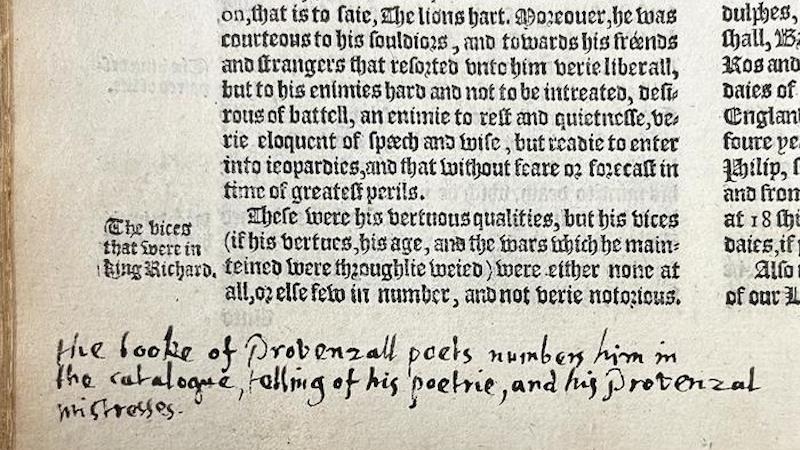 on, that is to saie, The lions hart. Moreouer, he was
courteous to his souldiors, and towards his fréends
and strangers that resorted vnto him verie liberall,
but to his enimies hard and not to be intreated, desi-
rous of battell, an enimie to rest and quietnesse, ve-
rie eloquent of spéech and wise, but readie to enter
into ieopardies, and that without feare or forecast in
time of greatest perils.
These were his vertuous qualities, but his vices
(if his vertues, his age, and the wars which he main-
teined were throughlie weied) were either none at
all, or else few in number, and not verie notorious.
The vices
that were in
king Richard.
the booke of Provenzall poets numbers him in
the catalogue, telling of his poetrie, and his Provenzal
mistresses.
dulphes,
shall,
Ros and
daies of
England
foure ye
Philip, s
and from
at 18 shi
daies, if
Also
of our L